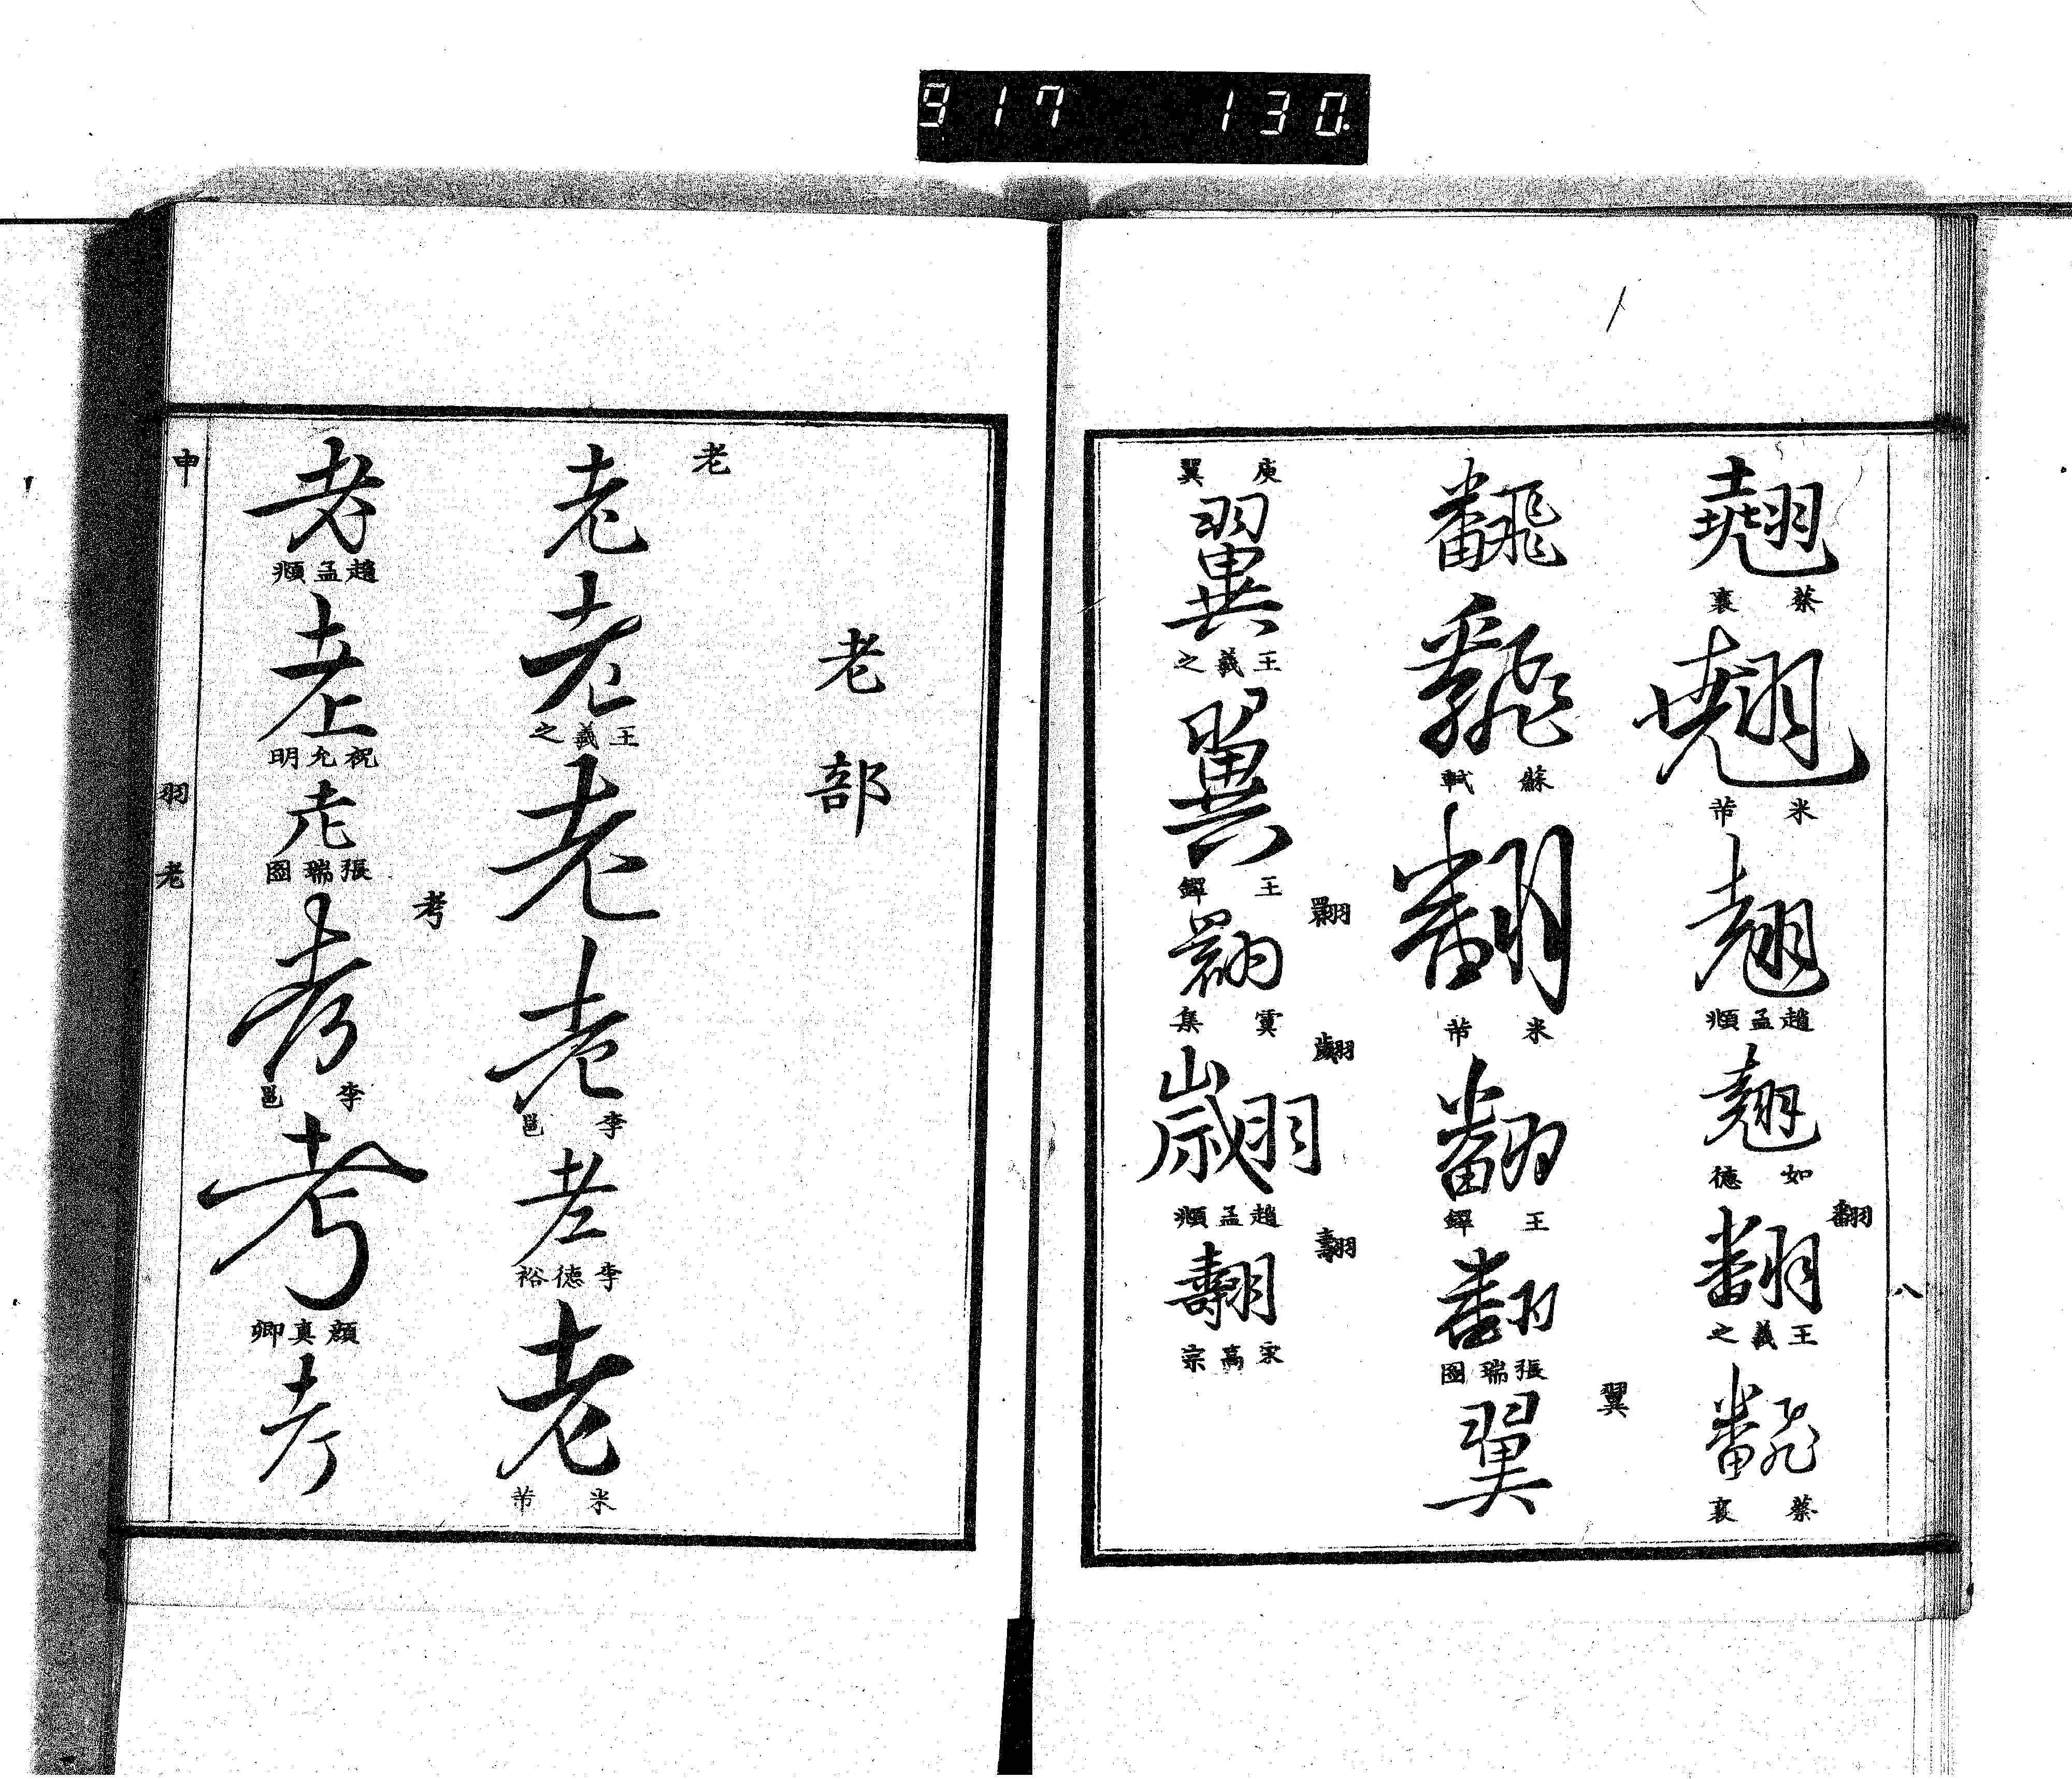 917 130.
八
翹
蔡襄
翹
米芾
翹
趙孟頫
翹
如德
翻
翻
王羲之
飜
蔡襄
飜
飜
蘇軾
翻
米芾
翻
王鐸
翻
張瑞圖
翼
翼
庾翼
翼
王羲之
翼
王鐸
翾
翾
虞集
翽
翽
趙孟頫
翿
翿
宋高宗
老部
老
老
老
王羲之
老
老
李邕
老
李德裕
老
米芾
老
趙孟頫
老
祝允明
老
張瑞圖
考
考
李邕
考
顏真卿
考
申
羽老